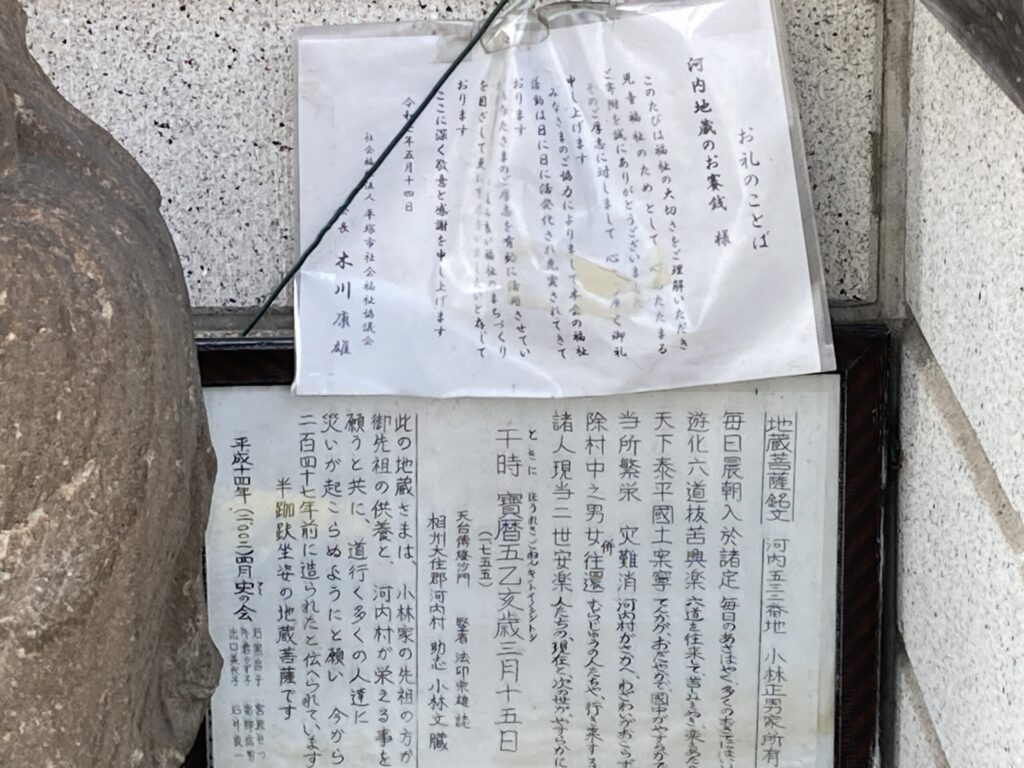 お礼のことば
河内地蔵のお賽銭 様
このたびは福祉の大切さをご理解いただき
児童福祉のためとして 心あたたまる
ご寄附を誠にありがとうございました
そのご厚志に対しまして 心 厚く御礼
申し上げます
みなさまのご協力によりまして本会の福祉
活動は日に日に活発化され充実されてきて
おります
ご厚志を有効に活用させてい
を目ざして更に 良い福祉のまちづくり
おります
ここに深く敬意と感謝を申し上げます
年五月十四日
社会福祉 人 平塚市社会福祉協議会
会長 木川康雄
地蔵菩薩銘文 河内五三三番地 小林正男家所有
毎日晨朝入於諸定 毎日のあさはやく多くの
遊化六道抜苦與楽 六道を往来して苦しみをぬき楽をあた
天下泰平國土安寧 てんかがおだやかで国中がやすらかで
当所繁栄 災難消 河内村がさかへ、わざわいがおこらず
除村中之男女併往還 むらじゅうの人たちや、行き来する
諸人現当二世安楽 人たちの現在と次の世がやすらかに
干時 寶暦五乙亥歳三月十五日
(一七五五)
天台傳燈沙門 竪者 法印宗雄誌
相州大住郡河内村 助志 小林文蔵
此の地蔵さまは、小林家の先祖の方が
御先祖の供養と、河内村が栄える事を
願うと共に、道行く多くの人達に
災いが起こらぬようにと願い 今から
二百四十七年前に造られたと伝へられています
半跏趺坐姿の地蔵菩薩です
平成十四年(二〇〇二)四月 史の会